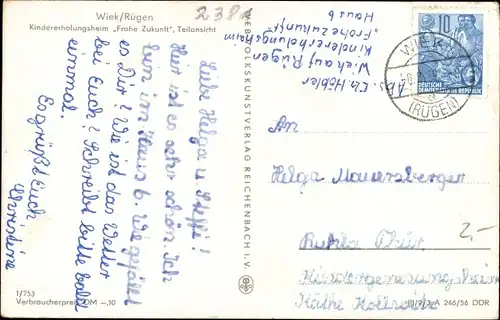 Wiek/Rügen
Kindererholungsheim „Frohe Zukunft", Teilansicht
2381
Liebe Helga u. Steffi!
Hier ist es sehr schön. Ich
bin im Haus 6. Wie gefällt
es Dir? Wie ist das Wetter
bei Euch? Schreibt bitte bald
einmal.
Es grüßt Euch
Christine
1/753
Verbraucherpreis DM -,10
VEB VOLKSKUNSTVERLAG REICHENBACH I. V.
Abs.
Wiek auf Rügen
Kindererholungsheim
„Frohe Zukunft"
Haus 6
10
DEUTSCHE
DEMOKRATISCHE REPUBLIK
WIEK
(RÜGEN)
a
An
Helga Mauersberger
Ruhla Thür.
Käthe Kollwitz
2,-
A 246/56 DDR